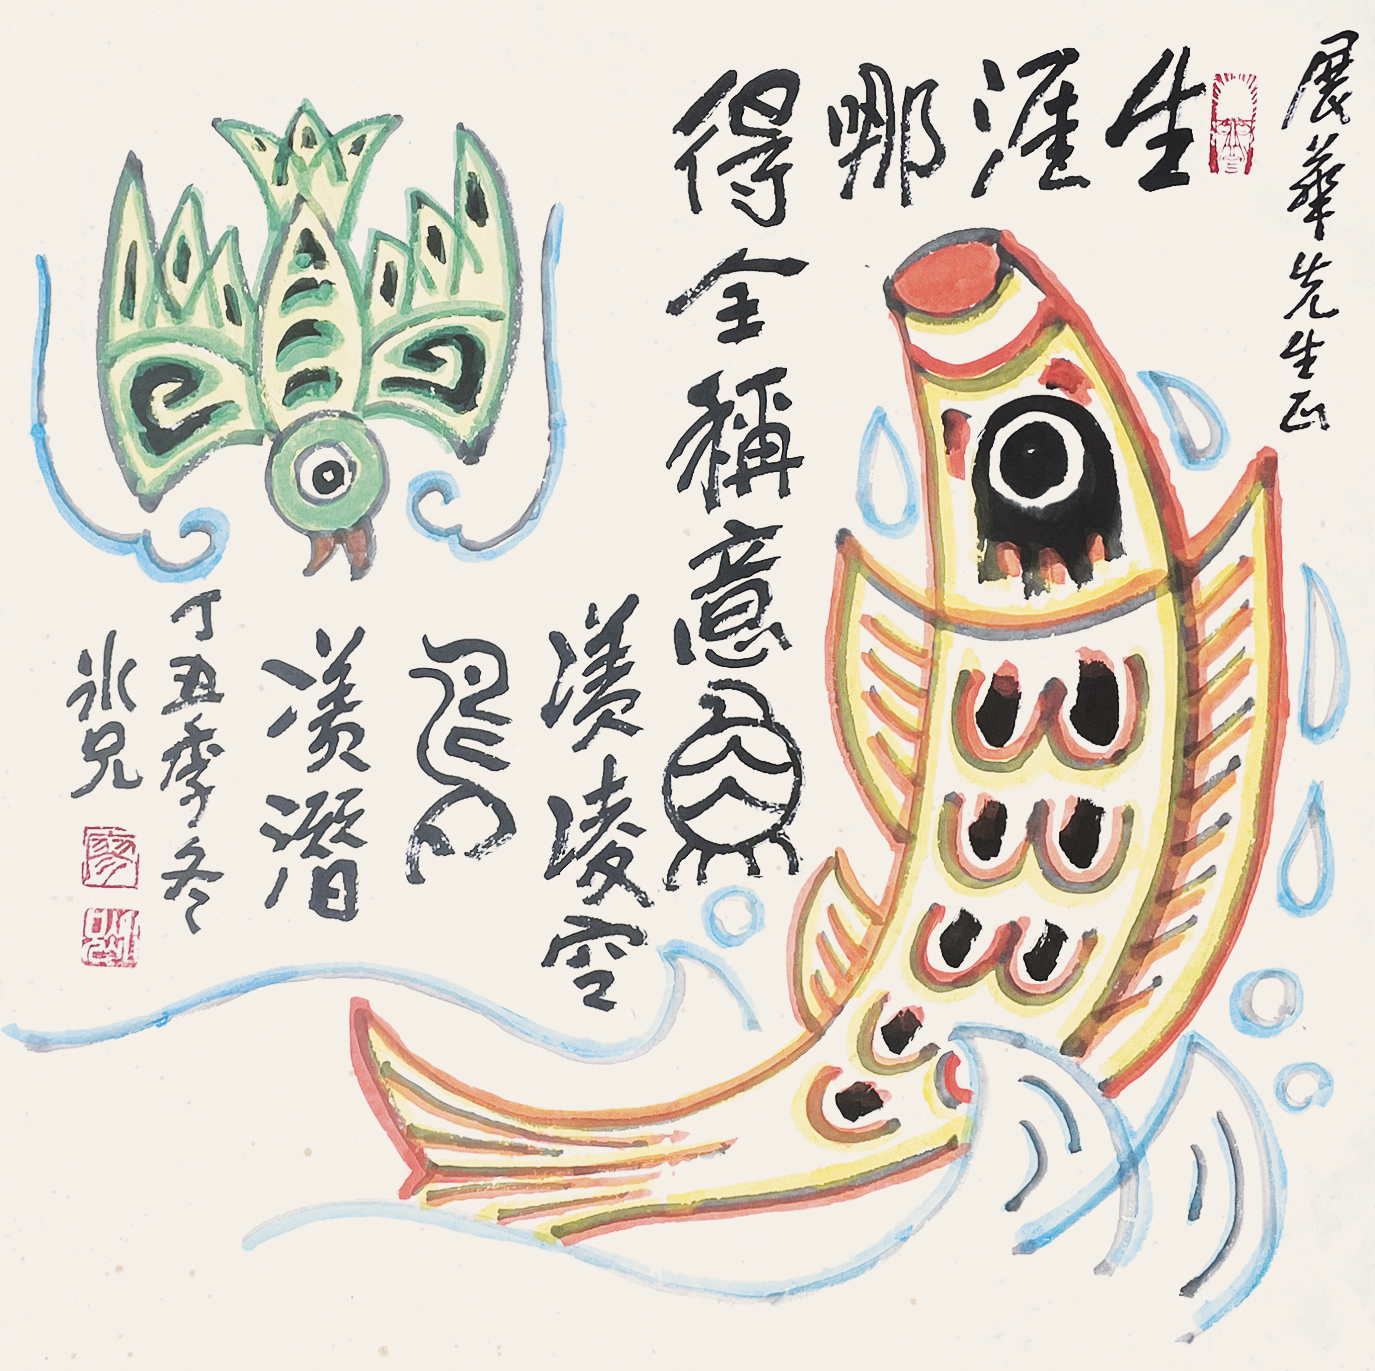 展華先生正
生涯哪得全稱意魚
羨凌空
鳥
羨潛
丁丑季冬
冰兄
廖